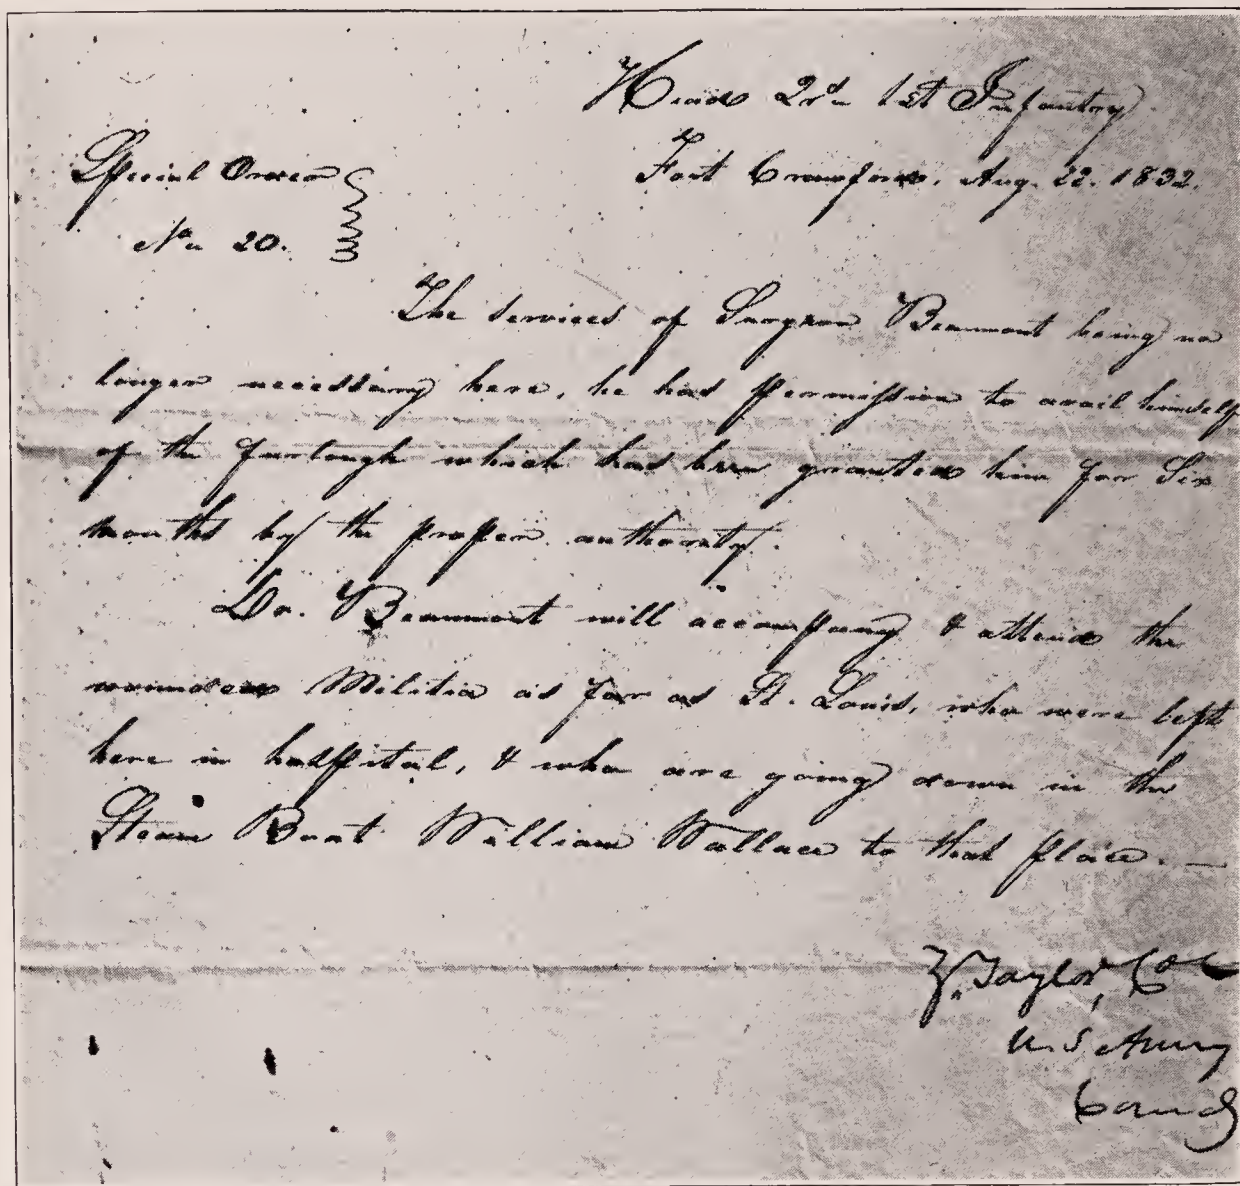 Head Qrs. 1st Infantry
Fort Crawford, Aug. 22. 1832.
Special Order
No. 20.
The services of Surgeon Beaumont being no
longer necessary here, he has permission to avail himself
of the furlough which has been granted him for Six
months by the proper authority.
Dr. Beaumont will accompany & attend the
wounded Militia as far as St. Louis, who were left
here in hospital, & who are going down in the
Steam Boat William Wallace to that place. —
Z. Taylor, Col
U. S Army
Comdg